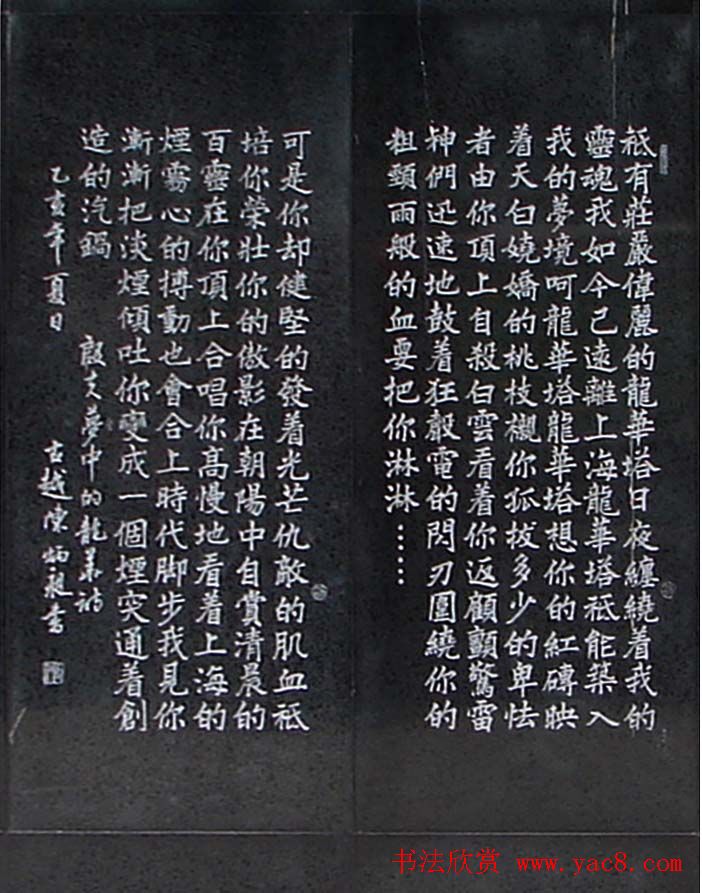 祗有莊嚴偉麗的龍華塔日夜纏繞着我的
靈魂我如今已遠離上海龍華塔祗能築入
我的夢境呵龍華塔龍華塔想你的紅磚映
着天白嬈嬌的桃枝襯你孤拔多少的卑怯
者由你頂上自殺白雲看着你返顧顫驚雷
神們迅速地鼓着狂㲈電的閃刃圍繞你的
粗頸雨般的血要把你淋淋……
可是你却健堅的發着光芒仇敵的肌血祗
培你榮壯你的傲影在朝陽中自賞清晨的
百靈在你頂上合唱你高慢地看着上海的
煙霧心的搏動也會合上時代脚步我見你
漸漸把淡煙傾吐你變成一個煙突通着創
造的汽鍋
殷夫夢中的龍華詩
乙亥年夏日
古越陳炳昶書
书法欣赏 www.yac8.com